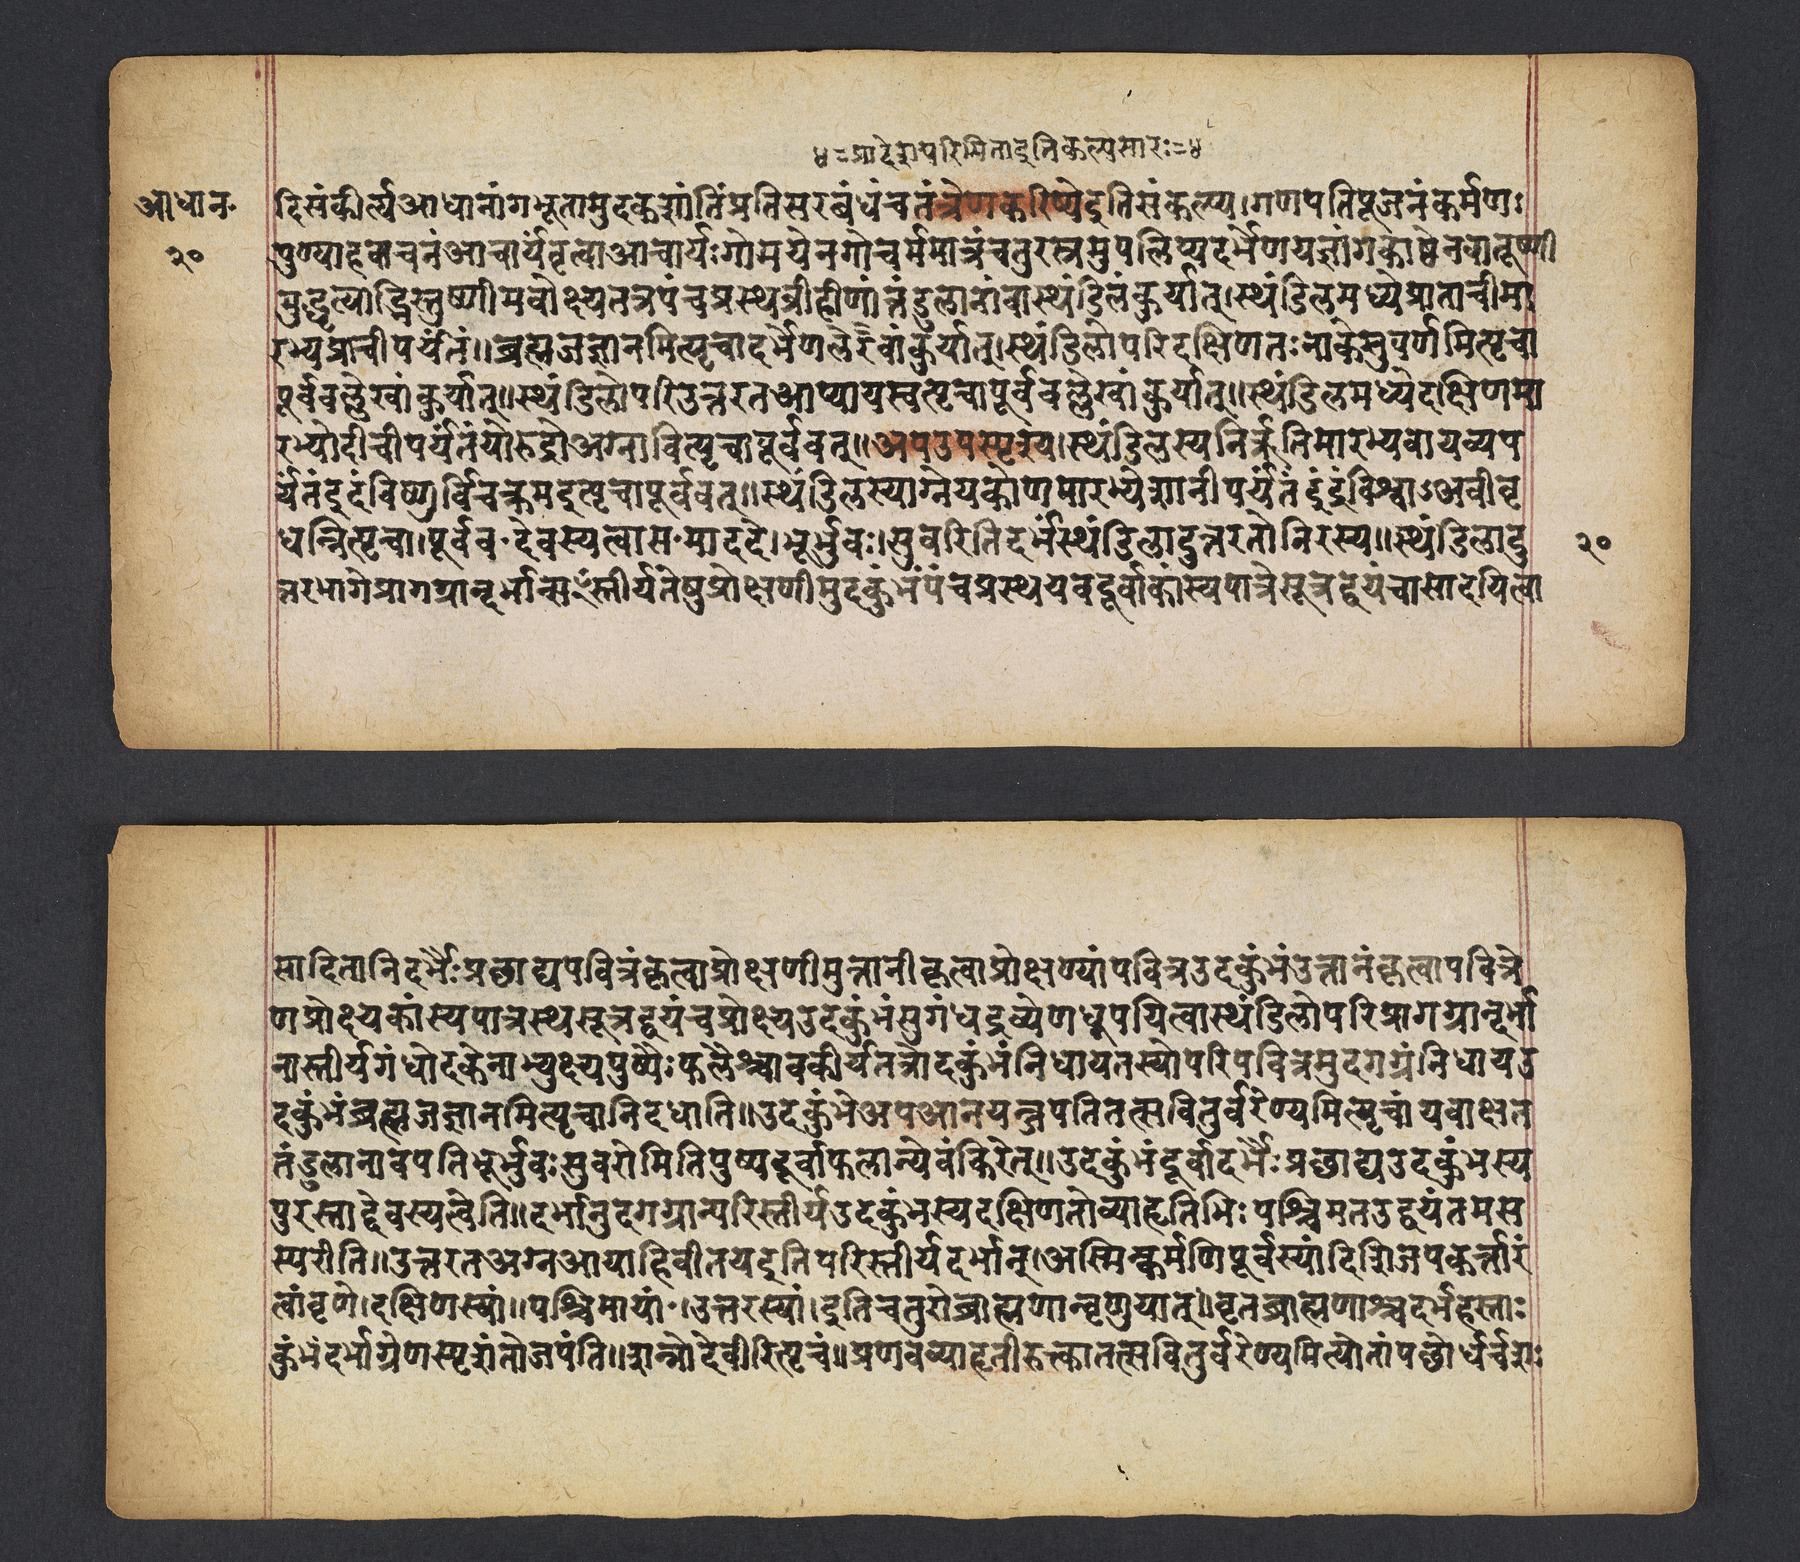 ४=प्रादेशपरिमितादुतिकल्पसारः=४
आधान॰
२०
दिसंकीर्त्यआधानांगभूतामुदकशांतिंप्रतिसरबंधंचतंत्रेणकरिष्येइतिसंकल्प्य।गणपतिपूजनंकर्मणः
पुण्याहवाचनंआचार्यंवृत्वाआचार्यःगोमयेनगोचर्ममात्रंचतुरस्रमुपलिप्यदर्भेणयज्ञांगकाष्ठेनवातूष्णी
मुद्धृत्याद्भिस्तूष्णीमवोक्ष्यतत्रपंचप्रस्थव्रीहीणांतंडुलानांवास्थंडिलंकुर्यात्।स्थंडिलमध्येप्रातीचीमा
रभ्यप्राचीपर्यंतं॥ब्रह्मजज्ञानमित्यृचादर्भेणलेखांकुर्यात्।स्थंडिलोपरिदक्षिणतःनाकेसुपर्णमित्यृचा
पूर्ववल्लेखांकुर्यात्॥स्थंडिलोपरिउत्तरतआप्यायस्वत्यृचापूर्ववल्लेखांकुर्यात्॥स्थंडिलमध्येदक्षिणमा
रभ्योदीचीपर्यंतंयोरुद्रोअग्नावित्यृचापूर्ववत्॥अपउपस्पृश्य।स्थंडिलस्यनिर्ऋतिमारभ्यवायव्यप
र्यंतंइदंविष्णुर्विचक्रमइत्यृचापूर्ववत्॥स्थंडिलस्याग्नेयकोणमारभ्येशानीपर्यंतंइंद्रंविश्वाऽअवीवृ
धन्नित्यृचा।पूर्वव॰देवस्यत्वास॰माददे।भूर्भुवः।सुवरितिदर्भंस्थंडिलादुत्तरतोनिरस्य॥स्थंडिलादु
२०
त्तरभागेप्रागग्रान्दर्भान्संस्तीर्यतेषुप्रोक्षणीमुदकुंभंपंचप्रस्थयवदूर्वाकांस्यपात्रेसूत्रद्वयंचासादयित्वा
सादितानिदर्भैःप्रछाद्यपवित्रंकृत्वाप्रोक्षणीमुत्तानीकृत्वाप्रोक्षण्यांपवित्रउदकुंभंउत्तानंकृत्वापवित्रे
णप्रोक्ष्यकांस्यपात्रस्थसूत्रद्वयंचप्रोक्ष्यउदकुंभंसुगंधद्रव्येणधूपयित्वास्थंडिलोपरिप्रागग्रान्दर्भा
नास्तीर्यगंधोदकेनाभ्युक्ष्यपुष्पैःफलैश्चावकीर्यतत्रोदकुंभंनिधायतस्योपरिपवित्रमुदगग्रंनिधायउ
दकुंभंब्रह्मजज्ञानमित्यृचानिदधाति॥उदकुंभेअपआनयन्जपतितत्सवितुर्वरेण्यमित्यृचांयवाक्षत
तंडुलानावपतिभूर्भुवःसुवरोमितिपुष्पदूर्वाफलान्येवंकिरेत्॥उदकुंभंदूर्वादर्भैःप्रछाद्यउदकुंभस्य
पुरस्ताद्देवस्यत्वेति॥दर्भानुदगग्रान्परिस्तीर्यउदकुंभस्यदक्षिणतोव्याहृतिभिःपश्चिमतउद्वयंतमस
स्परीति॥उत्तरतअग्नआयाहिवीतयइतिपरिस्तीर्यदर्भान्।अस्मिन्कर्मणिपूर्वस्यांदिशिजपकर्त्तारं
त्वांवृणे।दक्षिणस्यां॥पश्चिमायां॰।उत्तरस्यां।इतिचतुरोब्राह्मणान्वृणुयात्।वृतब्राह्मणाश्चदर्भहस्ताः
कुंभंदर्भाग्रेणस्पृशंतोजपंति॥शन्नोदेवीरित्यृचं॥प्रणवंव्याहृतीरुत्कातत्सवितुर्वरेण्यमित्येतांपछोर्धर्चशः